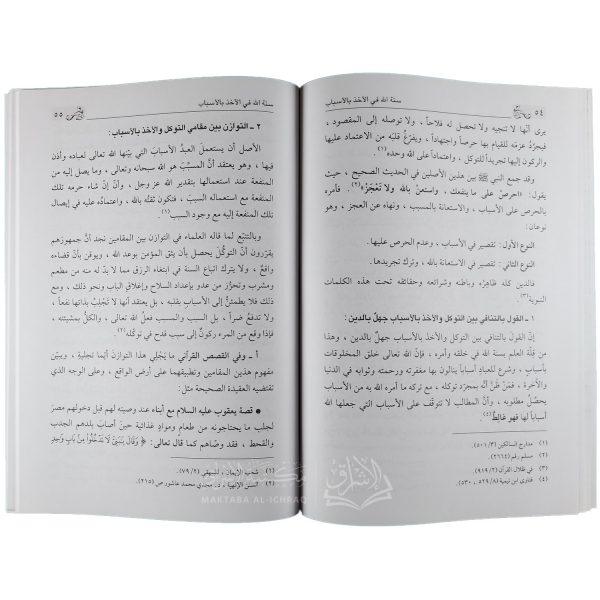 ٥٤
سنة الله في الأخذ بالأسباب
يرى أنّها لا تنجيه ولا تحصل له فلاحاً ، ولا توصله إلى المقصود ،
فيجرِّد عزمه للقيام بها حرصاً واجتهاداً ، ويفرِّغ قلبه من الاعتماد عليها
والركون إليها تجريداً للتوكل ، واعتماداً على الله وحده(١).
وقد جمع النبي ﷺ بين هذين الأصلين في الحديث الصحيح ، حيث
يقول: «احرص على ما ينفعك ، واستعنْ بالله ولا تَعْجَزْ»(٢). فأمره
بالحرص على الأسباب ، والاستعانة بالمسبب ، ونهاه عن العجز ، وهو
نوعان:
النوع الأول: تقصير في الأسباب ، وعدم الحرص عليها.
النوع الثاني: تقصير في الاستعانة بالله ، وترك تجريدها.
فالدين كله ظاهرُه وباطنه وشرائعه وحقائقه تحت هذه الكلمات
النبوية(٣).
١ ـ القول بالتنافي بين التوكل والأخذ بالأسباب جهلٌ بالدين:
إنّ القول بالتنافي بين التوكل والأخذ بالأسباب جهلٌ بالدين ، وهذا
من قِلّة العلم بسنة الله في خلقه وأمره ، فإنَّ الله تعالى خلق المخلوقات
بأسبابٍ ، وشرع للعباد أسباباً ينالون بها مغفرته ورحمته وثوابه في الدنيا
والآخرة ، فمَنْ ظنَّ أنّه بمجرّد توكله ، مع تركه ما أمره الله به من الأسباب
يحصّل مطلوبه ، وأنّ المطالب لا تتوقّف على الأسباب التي جعلها الله
أسباباً لها فهو غالِطٌ(٤).
(١) مدارج السالكين (٥٠١/٣).
(٢) مسلم رقم (٢٦٦٤).
(٣) في ظلال القرآن (٩١٩/٢).
(٤) فتاوى ابن تيمية (٥٢٩/٨ ، ٥٣٠).
سنة الله في الأخذ بالأسباب
٥٥
٢ ـ التوازن بين مقامي التوكل والأخذ بالأسباب:
الأصل أن يستعملَ العبدُ الأسبابَ التي بيّنها الله تعالى لعباده وأذن
فيها ، وهو يعتقد أنَّ المسبِّبَ هو الله سبحانه وتعالى ، وما يصل إليه من
المنفعة عند استعمالها بتقدير الله عز وجل ، وأنّ إنْ شاء حرمه تلك
المنفعة مع استعماله السببَ ، فتكون ثقتُه بالله ، واعتمادُه عليه في إيصال
تلك المنفعة إليه مع وجود السبب(١).
وبالتتبّع لما قاله العلماء في التوازن بين المقامين نجد أنَّ جمهورَهم
يقرّرون أنَّ التوكُّلَ يحصل بأن يثق المؤمن بوعد الله ، ويوقن بأنّ قضاءه
واقعٌ ، ولا يترك اتباع السنة في ابتغاء الرزق مما لا بدّ له منه من مطعم
ومشرب وتحرّز من عدو بإعداد السلاح وإغلاق الباب ونحو ذلك ، ومع
ذلك فلا يطمئنُّ إلى الأسباب بقلبه ، بل يعتقد أنها لا تَجْلِبُ بذاتها نفعاً ،
ولا تدفعُ ضرّاً ، بل السبب والمسبب فعل الله تعالى ، والكلُّ بمشيئته ،
فإذا وقع من المرء ركونٌ إلى سبب قدح في توكّله(٢).
أ ـ وفي القصص القرآني ما يُجلي هذا التوازنَ أيّما تجلية ، ويبيّن
مفهوم هذين المقامين وتطبيقهما على أرض الواقع ، وعلى الوجه الذي
تقتضيه العقيدة الصحيحة مثل:
• قصة يعقوب عليه السلام مع أبناءه عند وصيته لهم قبل دخولهم مصرَ
لجلب ما يحتاجونه من طعام ومواد غذائية حين أصاب بلدهم الجدب
والقحط ، فقد وصّاهم كما قال تعالى: ﴿ وَقَالَ يَٰبَنِىَّ لَا تَدْخُلُوا۟ مِنۢ بَابٍ وَٰحِدٍ
(١) شعب الإيمان ، للبيهقي (٧٩/٢).
(٢) السنن الإلهية ، د. مجدي محمد عاشور ص (٢١٥).
مكتبة الإشراق
MAKTABA AL-ICHRAQ